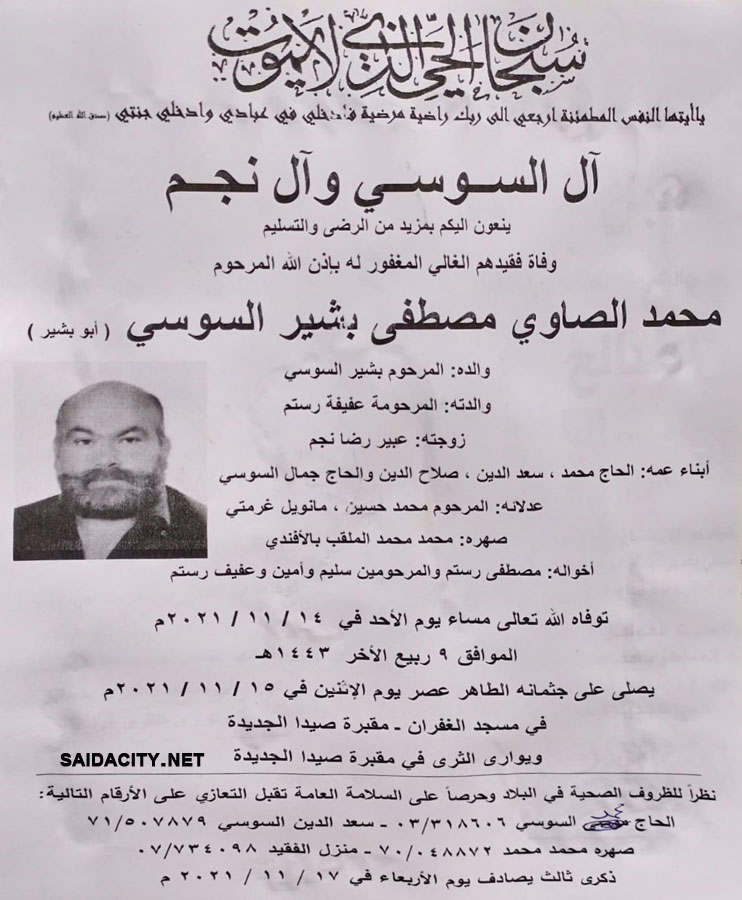 سبحان الحي الذي لا يموت
ياأيتها النفس المطمئنة ارجعي الى ربك راضية مرضية فادخلي في عبادي وادخلي جنتي (صدق الله العظيم)
آل السوسي وآل نجم
ينعون اليكم بمزيد من الرضى والتسليم
وفاة فقيدهم الغالي المغفور له بإذن الله المرحوم
محمد الصاوي مصطفى بشير السوسي ( أبو بشير )
والده: المرحوم بشير السوسي
والدته: المرحومة عفيفة رستم
زوجته: عبير رضا نجم
أبناء عمه: الحاج محمد ، سعد الدين ، صلاح الدين والحاج جمال السوسي
عدلانه: المرحوم محمد حسين ، مانويل غرمتي
صهره: محمد محمد الملقب بالأفندي
أخواله: مصطفى رستم والمرحومين سليم وأمين وعفيف رستم
توفاه الله تعالى مساء يوم الأحد في ١٤ / ١١ / ٢٠٢١م
الموافق ٩ ربيع الأخر ١٤٤٣هـ
يصلى على جثمانه الطاهر عصر يوم الإثنين في ١٥ / ١١ / ٢٠٢١م
في مسجد الغفران ـ مقبرة صيدا الجديدة
ويوارى الثرى في مقبرة صيدا الجديدة
SAIDACITY.NET
نظراً للظروف الصحية في البلاد وحرصاً على السلامة العامة تقبل التعازي على الأرقام التالية:
الحاج السوسي ٠٣/٣١٨٦٠٦ ـ سعد الدين السوسي ٧١/٥٠٧٨٧٩
صهره محمد محمد ٧٠/٠٤٨٨٧٢ ـ منزل الفقيد ٠٧/٧٣٤٠٩٨
ذكرى ثالث يصادف يوم الأربعاء في ١٧ / ١١ / ٢٠٢١ م